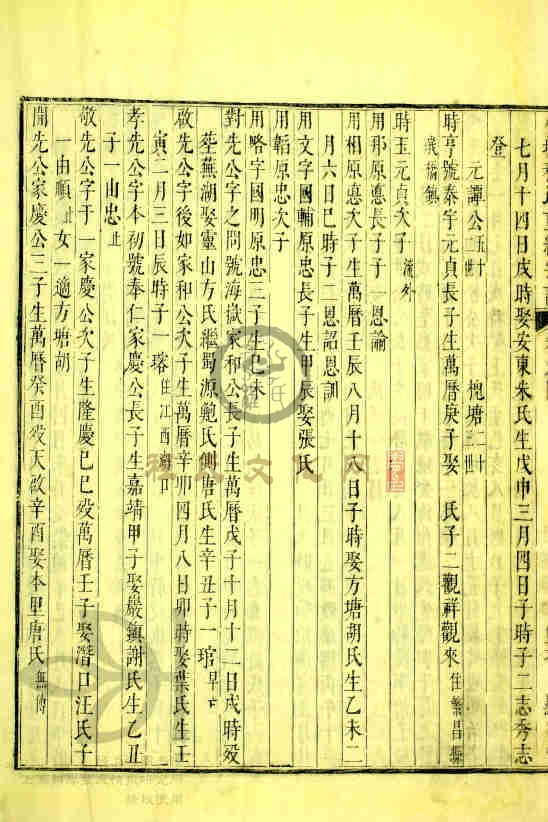 七月十四日戌時娶安東朱氏生戊申三月四日子時子二志秀志
登
元譚公五十二世 槐塘二十三世
時亨號泰宇元貞長子生萬曆庚子娶 氏子二觀祥觀來住繁昌
橋鎮
時玉元貞次子 流外
用邦原憓長子子一恩諭
用相原憓次子生萬曆壬辰八月十八日子時娶方塘胡氏生乙未二
月六日巳時子二恩詔恩訓
用文字國輔原忠長子生甲辰娶張氏
用韜原忠次子
用略字國明原忠三子生己未
對先公字之問號海嶽家和公長子生萬曆戊子十月十二日戌時歿
塟蕪湖娶靈山方氏繼蜀源鮑氏側唐氏生辛丑子一琯早亡
啟先公字後如家和公次子生萬曆辛卯四月八日卯時娶葉氏生壬
寅二月三日辰時子一瑹住江西湖口
孝先公字本初號奉仁家慶公長子生嘉靖甲子娶巖鎮謝氏生乙丑
子一山忠止
敬先公字于一家慶公次子生隆慶己巳歿萬曆壬子娶潛口汪氏子
一由順止女一適方塘胡
開先公家慶公三子生萬曆癸酉歿天啟辛酉娶本里唐氏無傳